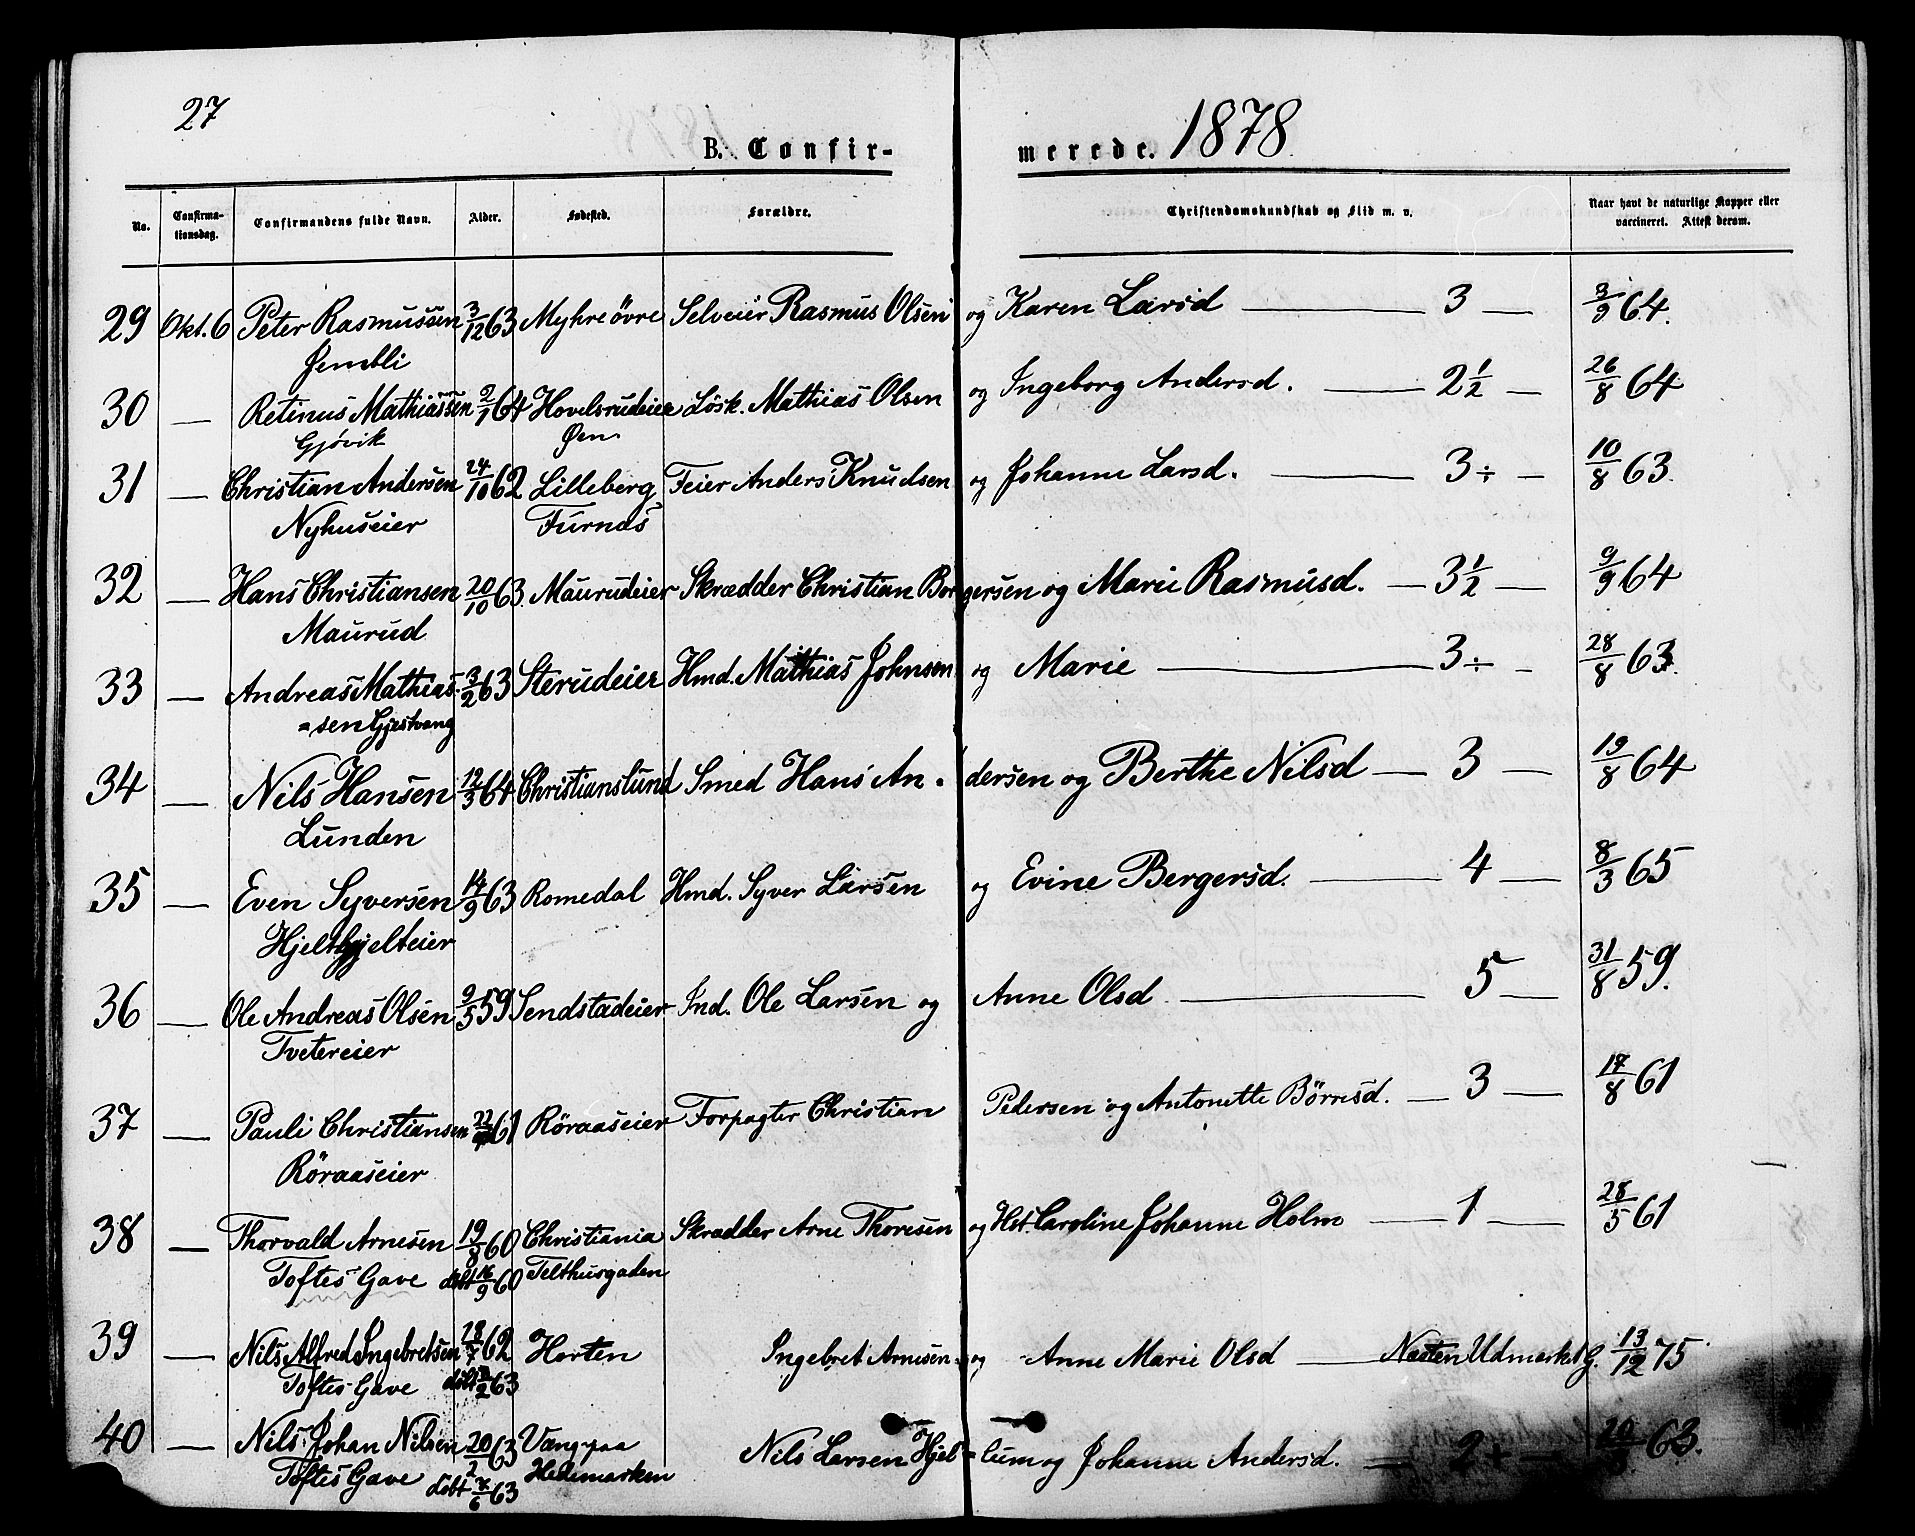 27
B. Confirmerede. 1878
No. Confirmationsdag. Confirmandens fulde Navn. Alder. Fødested. Forældre. Christendomskundskab og Flid m. v. Naar havt de naturlige Kopper eller vaccineret. Attest derom.
29 Okt. 6 Peter Rasmussen 3/12 63 Myhre övre Selveier Rasmus Olsen og Karen Larsd — 3 — 3/9 64.
Jembli
30 — Retinus Mathiassen 2/1 64 Hovelsrudeier Løsk. Mathias Olsen og Ingeborg Andersd. — 2 1/2 — 26/8 64
Gjövik Øen
31 — Christian Andersen 24/10 62 Lilleberg Feier Anders Knudsen og Johanne Larsd. — 3 ÷ — 10/8 63.
Nyhuseier Furnæs
32 — Hans Christiansen 20/10 63. Maurudeier Skrædder Christian Borgersen og Marie Rasmusd. — 3 1/2 — 9/9 64
Maurud
33 — Andreas Mathias- 3/2 63 Sterudeier Hmd. Mathias Johnsen og Marie — 3 ÷ — 28/8 63.
=sen Gjestvang
34 — Nils Hansen 12/3 64 Christianslund Smed Hans An- dersen og Berthe Nilsd — 3 — 19/8 64
Lunden
35 — Even Syversen 14/9 63 Romedal Hmd. Syver Larsen og Evine Bergersd. — 4 — 8/3 65
Hjelthjelteier
36 — Ole Andreas Olsen 9/5 59 Sendstadeier Ind. Ole Larsen og Anne Olsd. — 5 — 31/8 59.
Tvetereier
37 — Pauli Christiansen 22/ 61 Röraaseier Forpagter Christian Pedersen og Antonette Börresd. — 3 — 17/8 61
Röraaseier
38 — Thorvald Arnesen 19/8 60 Christiania Skrædder Arne Thoresen og Hst. Caroline Johanne Holm — 1 — 28/5 61
Toftes Gave döbt 16/9 60 Telthusgaden
39 — Nils Alfred Ingebretsen 18/ 62 Horten Ingebret Arnesen og Anne Marie Olsd — Næsten Udmærket G. 13/12 75
Toftes Gave döbt /2 63
40 — Nils Johan Nilsen 20/2 63 Vang paa Nils Larsen Hjel=lum og Johanne Andersd. — 2 + — 20/ 63.
Toftes Gave döbt 7/6 63 Hedemarken